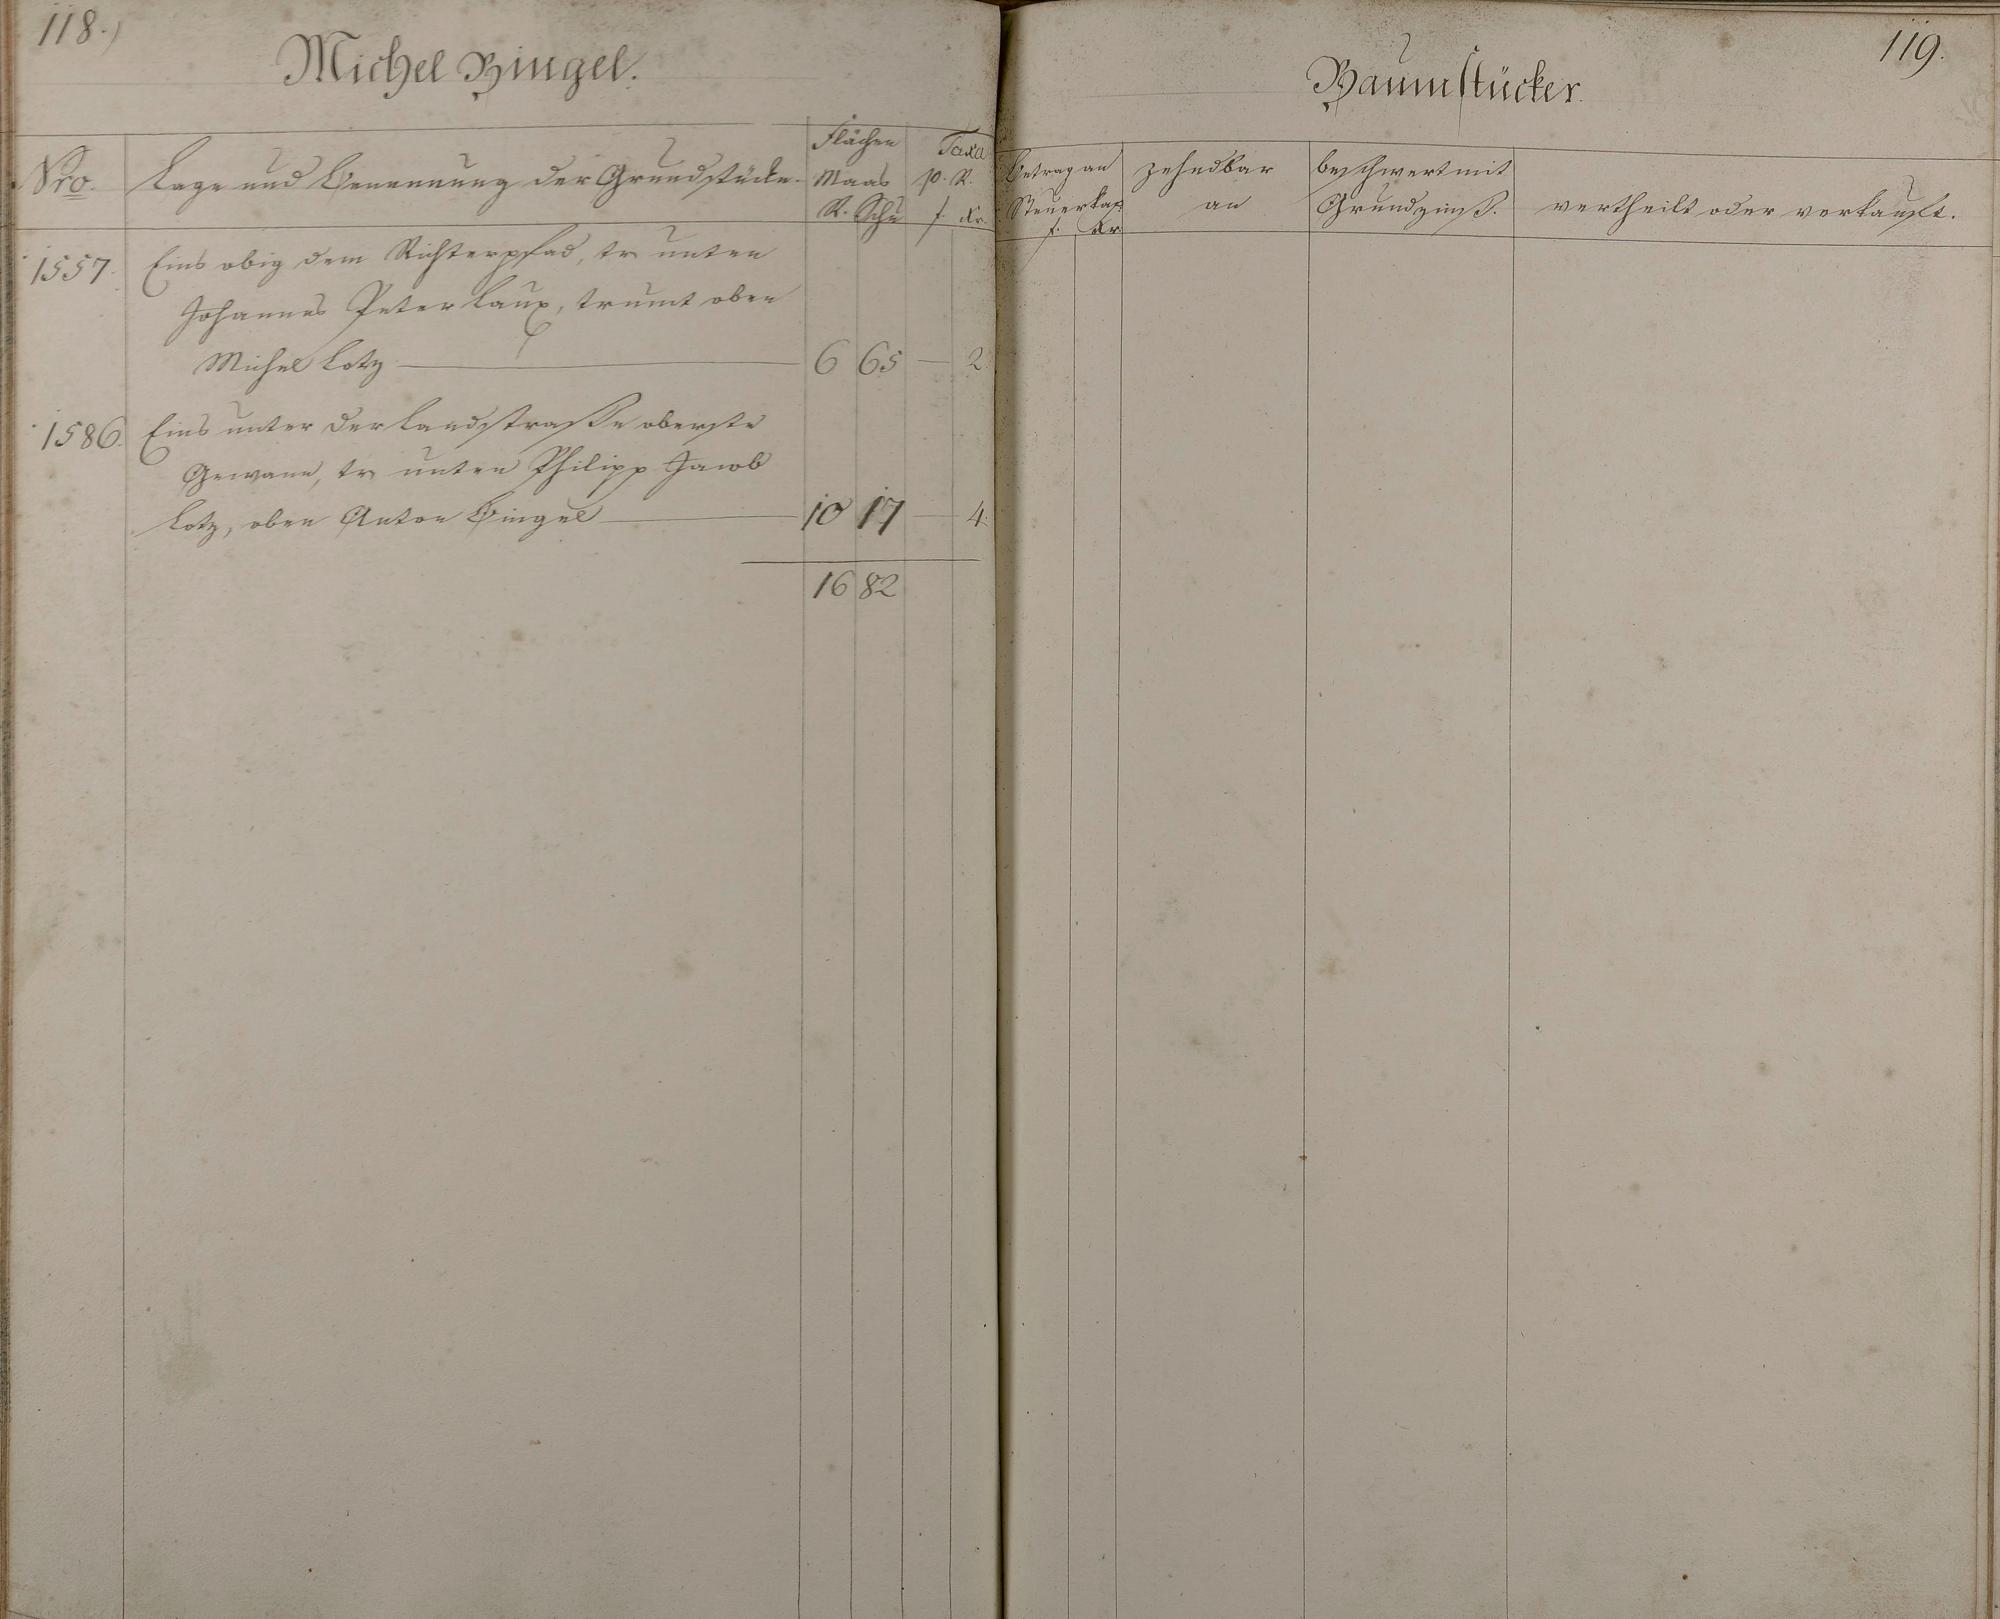 118.)
Michel Bingel.
Nro.
Lage und Benennung der Grundstücke.
Flächen
Maas
R. Schu
Taxa
p. R.
f. Kr.
1557. Eins obig dem Richterpfad, tr unten
Johannes Peter Laux, trumt oben
Michel Lotz — 6 65 — 2.
1586. Eins unter der Landstraße oberste
Gewann, tr unten Philipp Jacob
Lotz, oben Anton Bingel — 10 17 — 4.
16 82
119.
Baumstücker.
Betrag an
Steuerkap.
f. Kr.
zehndbar
an
beschwert mit
Grundzinß.
vertheilt oder verkauft.